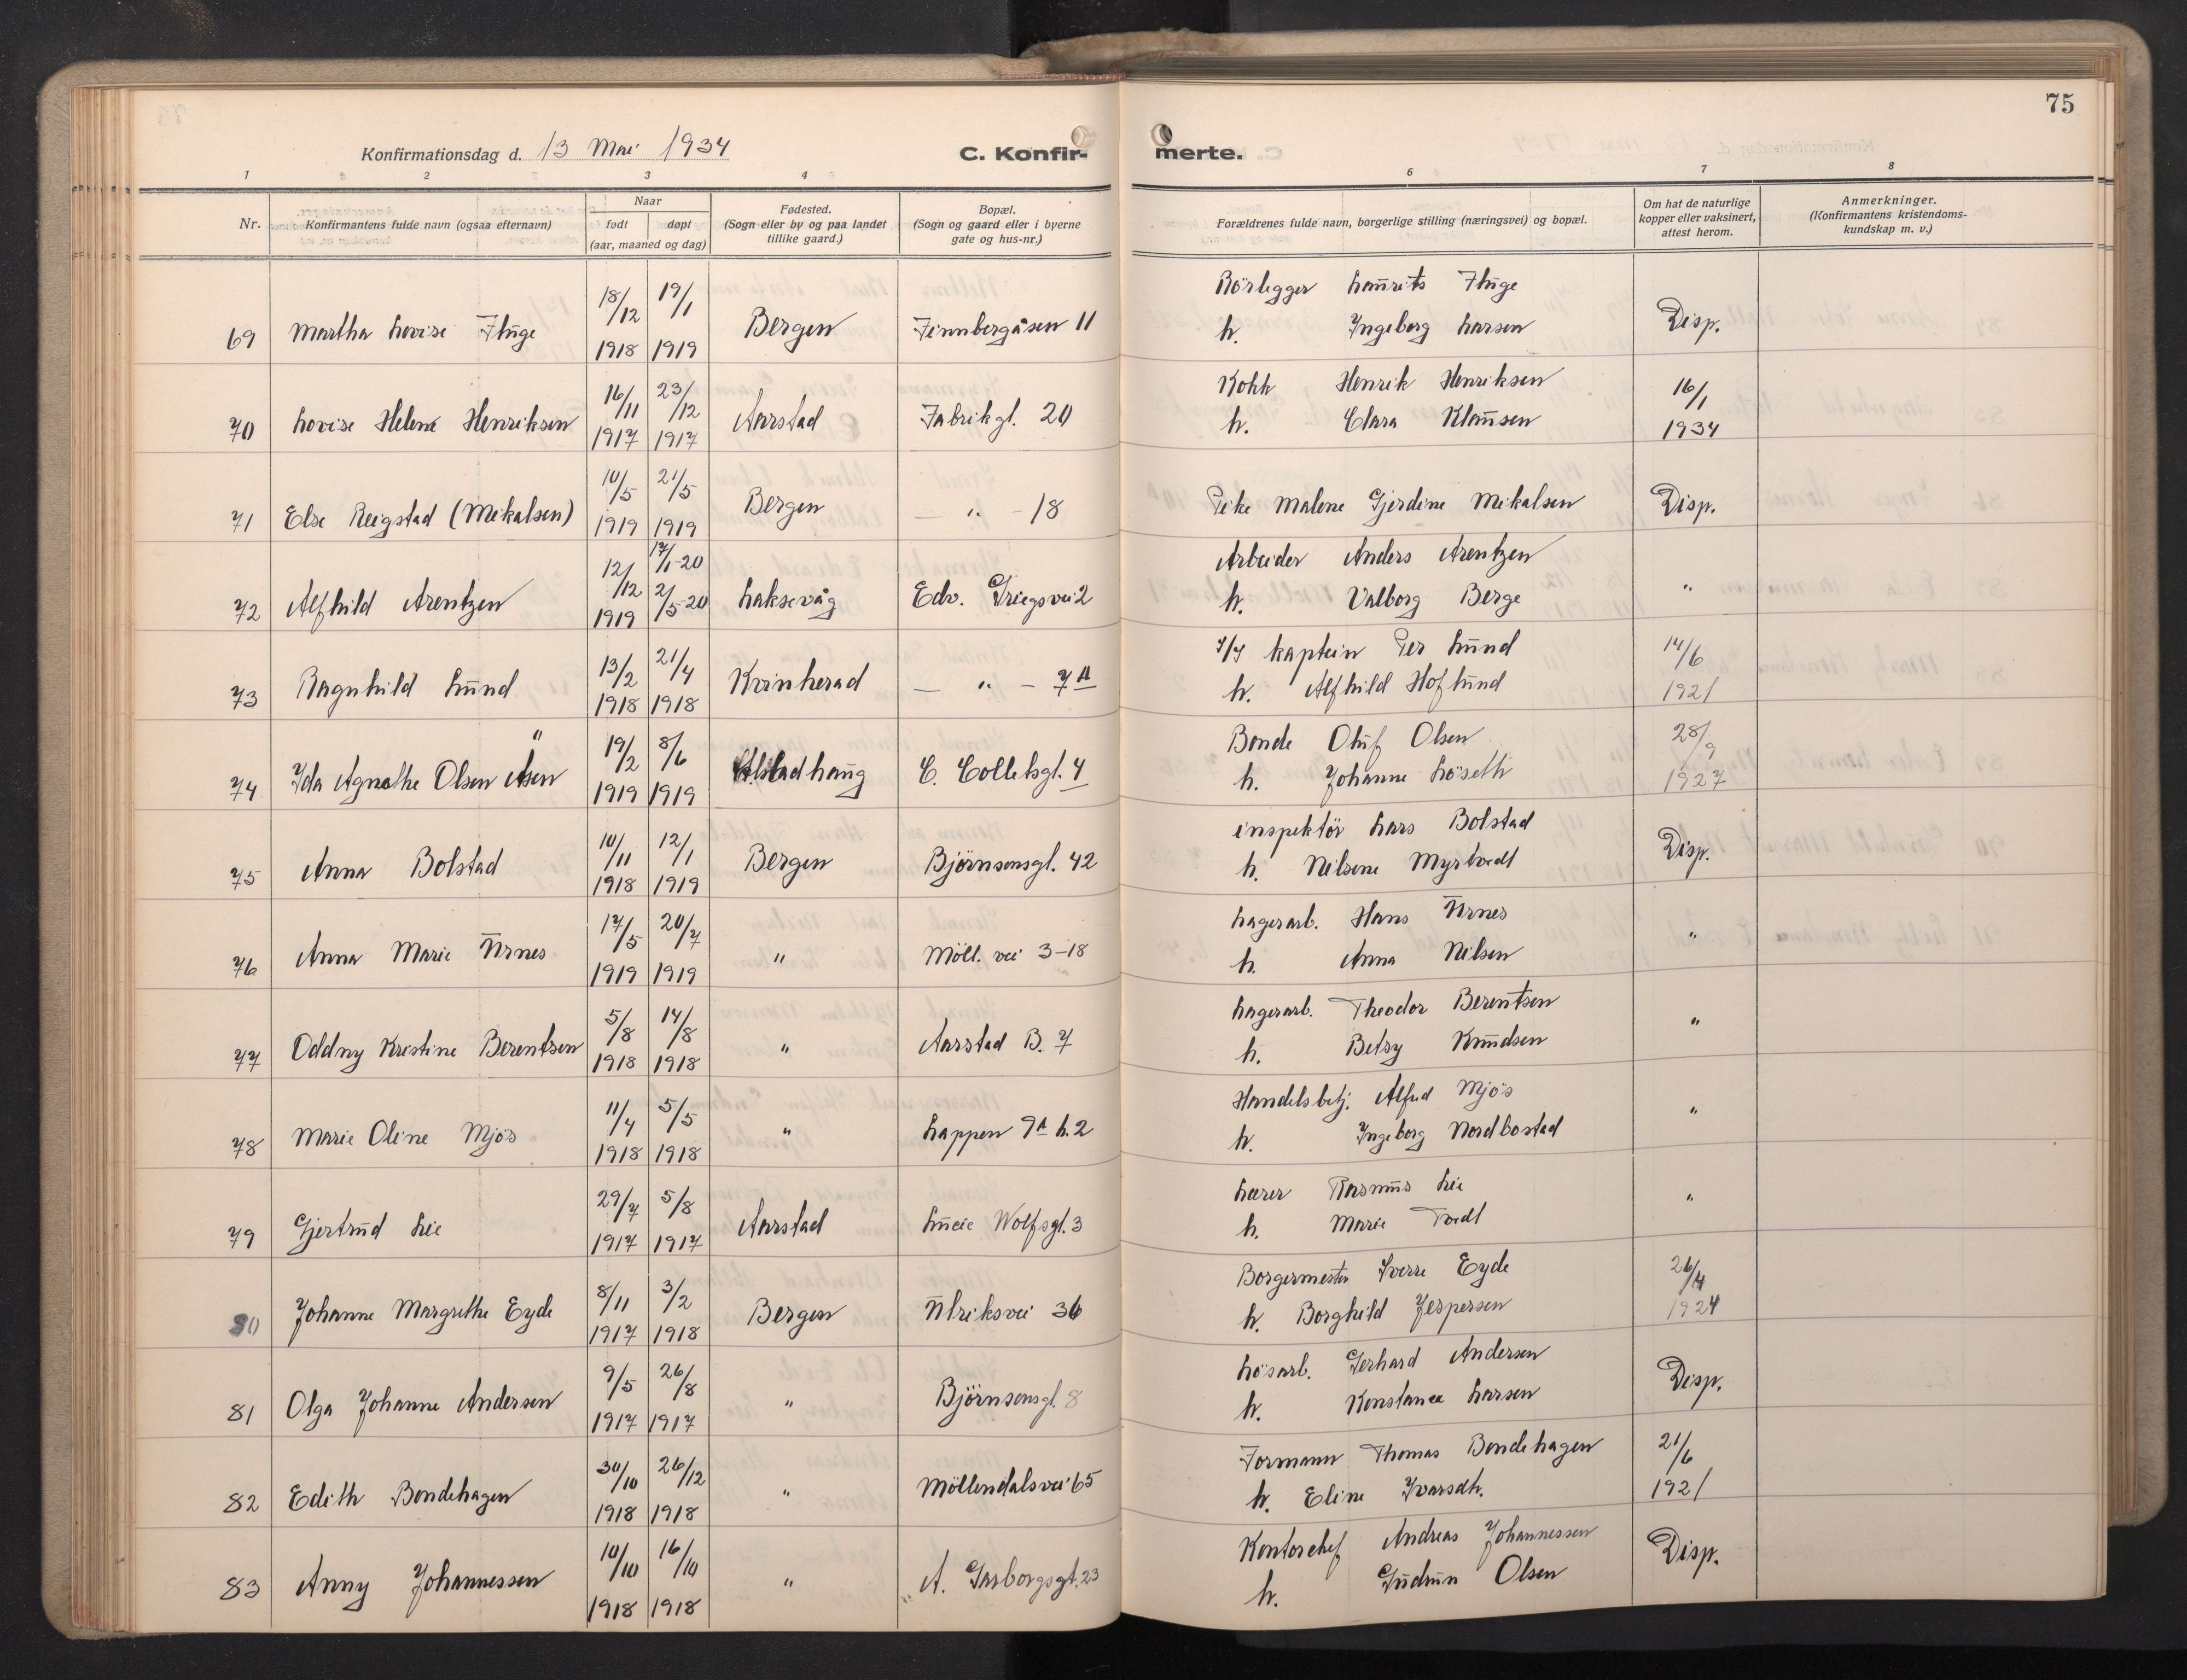 75
Konfirmationsdag d. 13 Mai 1934
C. Konfir- merte.
1 2 3 4 6 7 8
Nr. Konfirmantens fulde navn (ogsaa efternavn) Naar født døpt (aar, maaned og dag) Fødested. (Sogn eller by og paa landet tillike gaard.) Bopæl. (Sogn og gaard eller i byerne gate og hus-nr.) Forældrenes fulde navn, borgerlige stilling (næringsvei) og bopæl. Om hat de naturlige kopper eller vaksinert, attest herom. Anmerkninger. (Konfirmantens kristendoms- kundskap m. v.)
18/12 19/1 Rörlegger Laurits Fluge
69 Martha Lovise Fluge 1918 1919 Bergen Finnbergåsen 11 h. Ingeborg Larsen Disp.
16/11 23/12 Kokk Henrik Henriksen 16/1
70 Lovise Helene Henriksen 1917 1917 Aarstad Fabrikgt. 20 h. Clara Klausen 1934
10/5 21/5
71 Else Reigstad (Mekalsen) 1919 1919 Bergen — " — 18 Pike Malene Gjerdine Mikalsen Disp.
12/12 17/1-20 Arbeider Anders Arentzen
72 Alfhild Arentzen 1919 2/5-20 Laksevåg Edv. Griegsvei 2 h. Valborg Berge "
13/2 21/4 kaptein Per Lund 14/6
73 Ragnhild Lund 1918 1918 Kvinherad — " — 7A h. Alfhild Hoflund 1921
19/2 8/6 Bonde Oluf Olsen 28/9
74 Ida Agnathe Olsen Åsen 1919 1919 Alstadhaug C. Colletsgt. 4 h. Johanne Löseth 1927
10/11 12/1 inspektör Lars Bolstad
75 Anna Bolstad 1918 1919 Bergen Björnsonsgt. 42 h. Nilsine Myrtvedt Disp.
17/5 20/7 Lagerarb. Hans Urnes
76 Anna Marie Urnes 1919 1919 " Möll. vei 3-18 h. Anna Nilsen "
5/8 14/8 Lagerarb. Theodor Berentsen
77 Oddny Kristine Berentsen 1918 1918 " Aarstad B. 7 h. Betsy Knudsen "
11/4 5/5 Handelsbetj. Alfred Mjös
78 Marie Oline Mjös 1918 1918 " Lappen 9A h. 2 h. Ingeborg Nordbostad "
29/7 5/8 Lærer Rasmus Lie
79 Gjertrud Lie 1917 1917 Aarstad Lucie Wolfsgt. 3 h. Marie Tvedt "
8/11 3/2 Borgermester Sverre Eyde 26/4
80 Johanne Margrethe Eyde 1917 1918 Bergen Ulriksvei 36 h. Borghild Jespersen 1924
9/5 26/8 Lösarb. Gerhard Andersen
81 Olga Johanne Andersen 1917 1917 " Björnsonsgt. 8 h. Konstance Larsen Disp.
30/10 26/12 Formann Thomas Bondehagen 21/6
82 Edith Bondehagen 1918 1918 " Möllendalsvei 65 h. Eline Ivarsdtr. 1921
10/10 16/10 Kontorchef Andreas Johannessen
83 Anny Johannessen 1918 1918 " A. Garborgsgt. 23 h. Gudrun Olsen Disp.